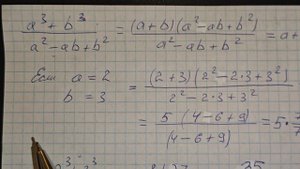 a³ + b³ / a² - ab + b² = (a+b)(a² - ab + b²) / a² - ab + b² = a +
Если a = 2
b = 3
= (2+3)(2² - 2·3 + 3²) / 2² - 2·3 + 3²
= 5 (4 - 6 + 9) / (4 - 6 + 9) = 5 ·